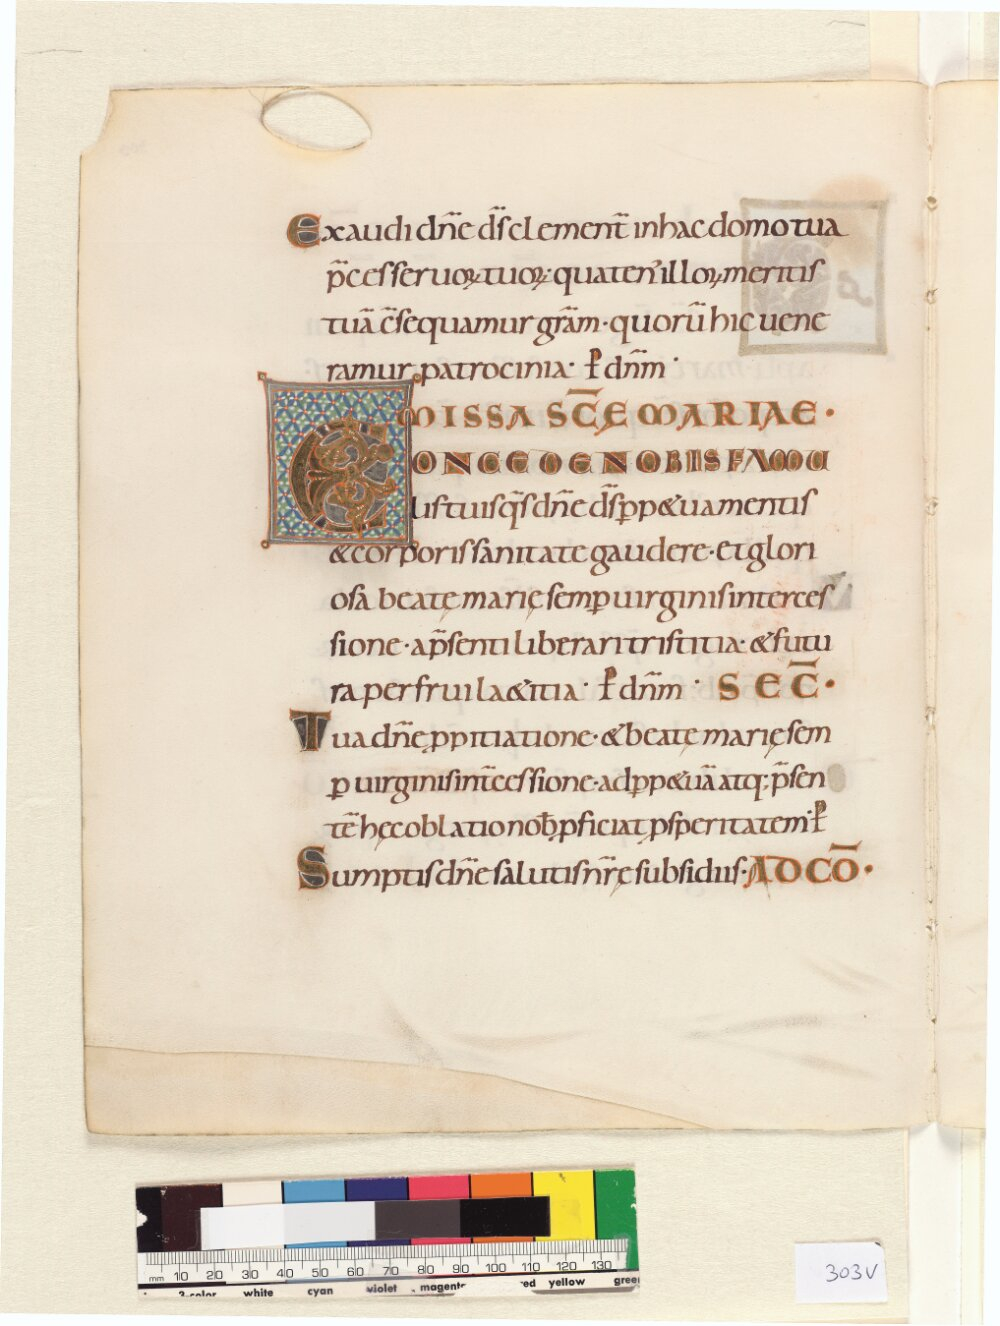 Exaudi dn̄e ds̄ clement̄ in hac domo tua
p̄ces seruoꝝ tuoꝝ· quaten᾽ illoꝝ meritis
tuā c̄sequamur grām· quorū hic uene
ramur patrocinia· ꝑ dn̄m·
MISSA SC̄E MARIAE·
CONCEDE NOBIS FAMU
lis tuis qs̄ dn̄e ds̄ ꝑp&ua mentis
& corporis sanitate gaudere· et glori
osa beatę marię semꝑ uirginis interces
sione· a p̄senti liberari tristitia· & futu
ra perfrui laetitia· ꝑ dn̄m· SEC̄·
Tua dn̄e ꝓpitiatione· & beatę marię sem
ꝑ uirginis int̄cessione· ad ꝑp&uā atq; p̄sen
tē hęc oblatio nob̄ ꝓficiat ꝓsperitatem· ꝑ
Sumptis dn̄e salutis nr̄ę subsidiis· AD CŌ·
mm 10 20 30 40 50 60 70 80 90 100 110 120 130
3-color white cyan violet magenta red yellow green
303V